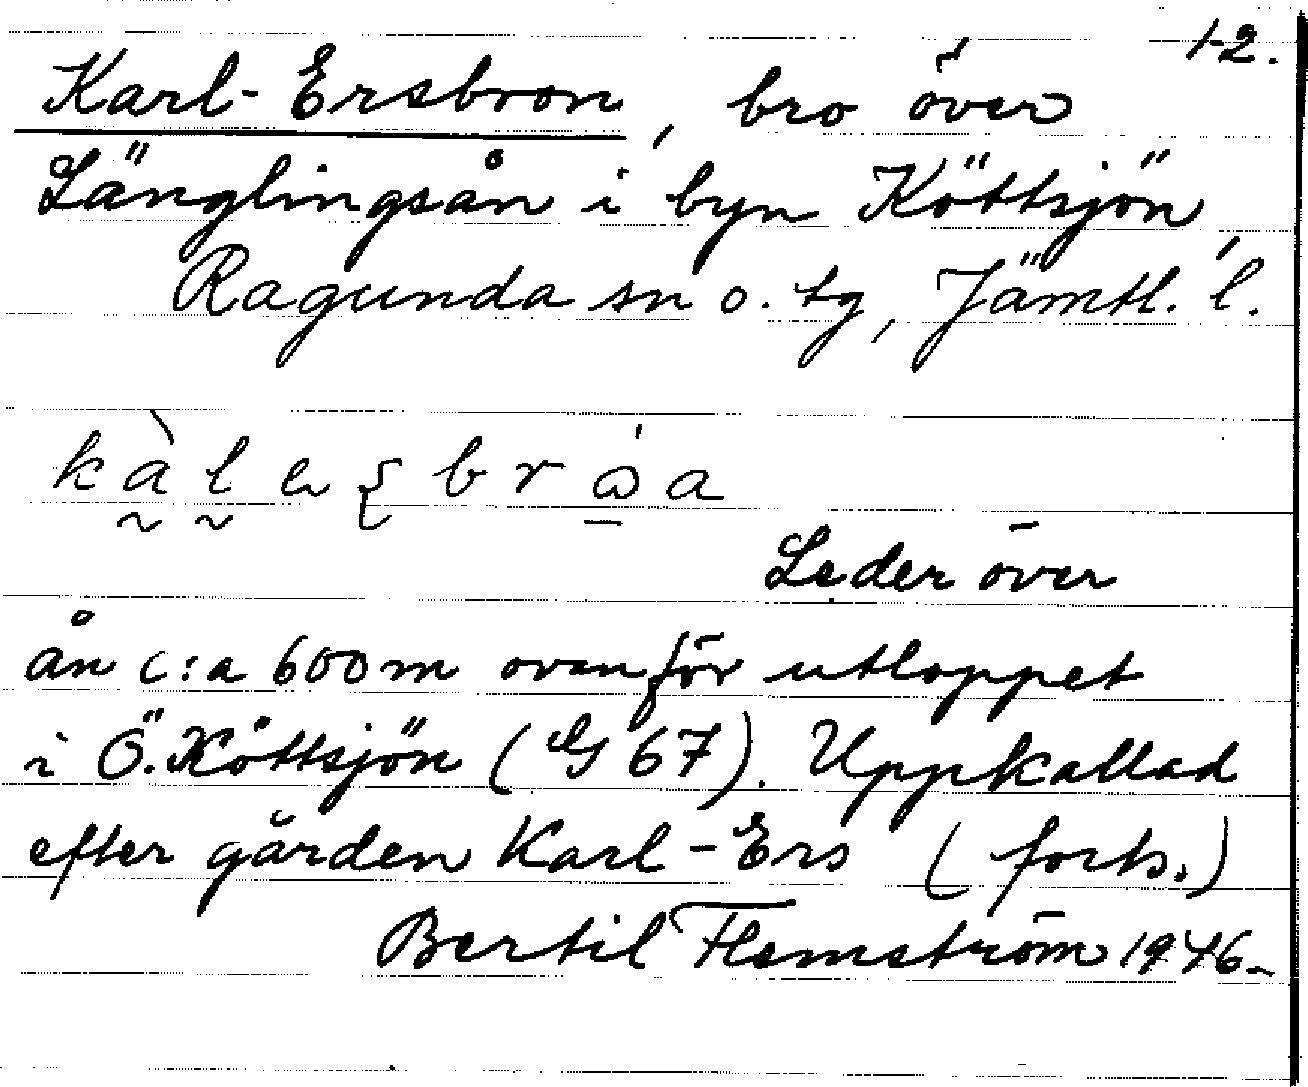 1-2.
Karl-Ersbron, bro över
Länglingsån i byn Köttsjön,
Ragunda sn o. tg, Jämtl. l.
Leder över
ån c:a 600 m ovanför utloppet
i Ö. Köttsjön (G 67). Uppkallad
efter gården Karl-Ers (forts.)
Bertil Flemström 1946.